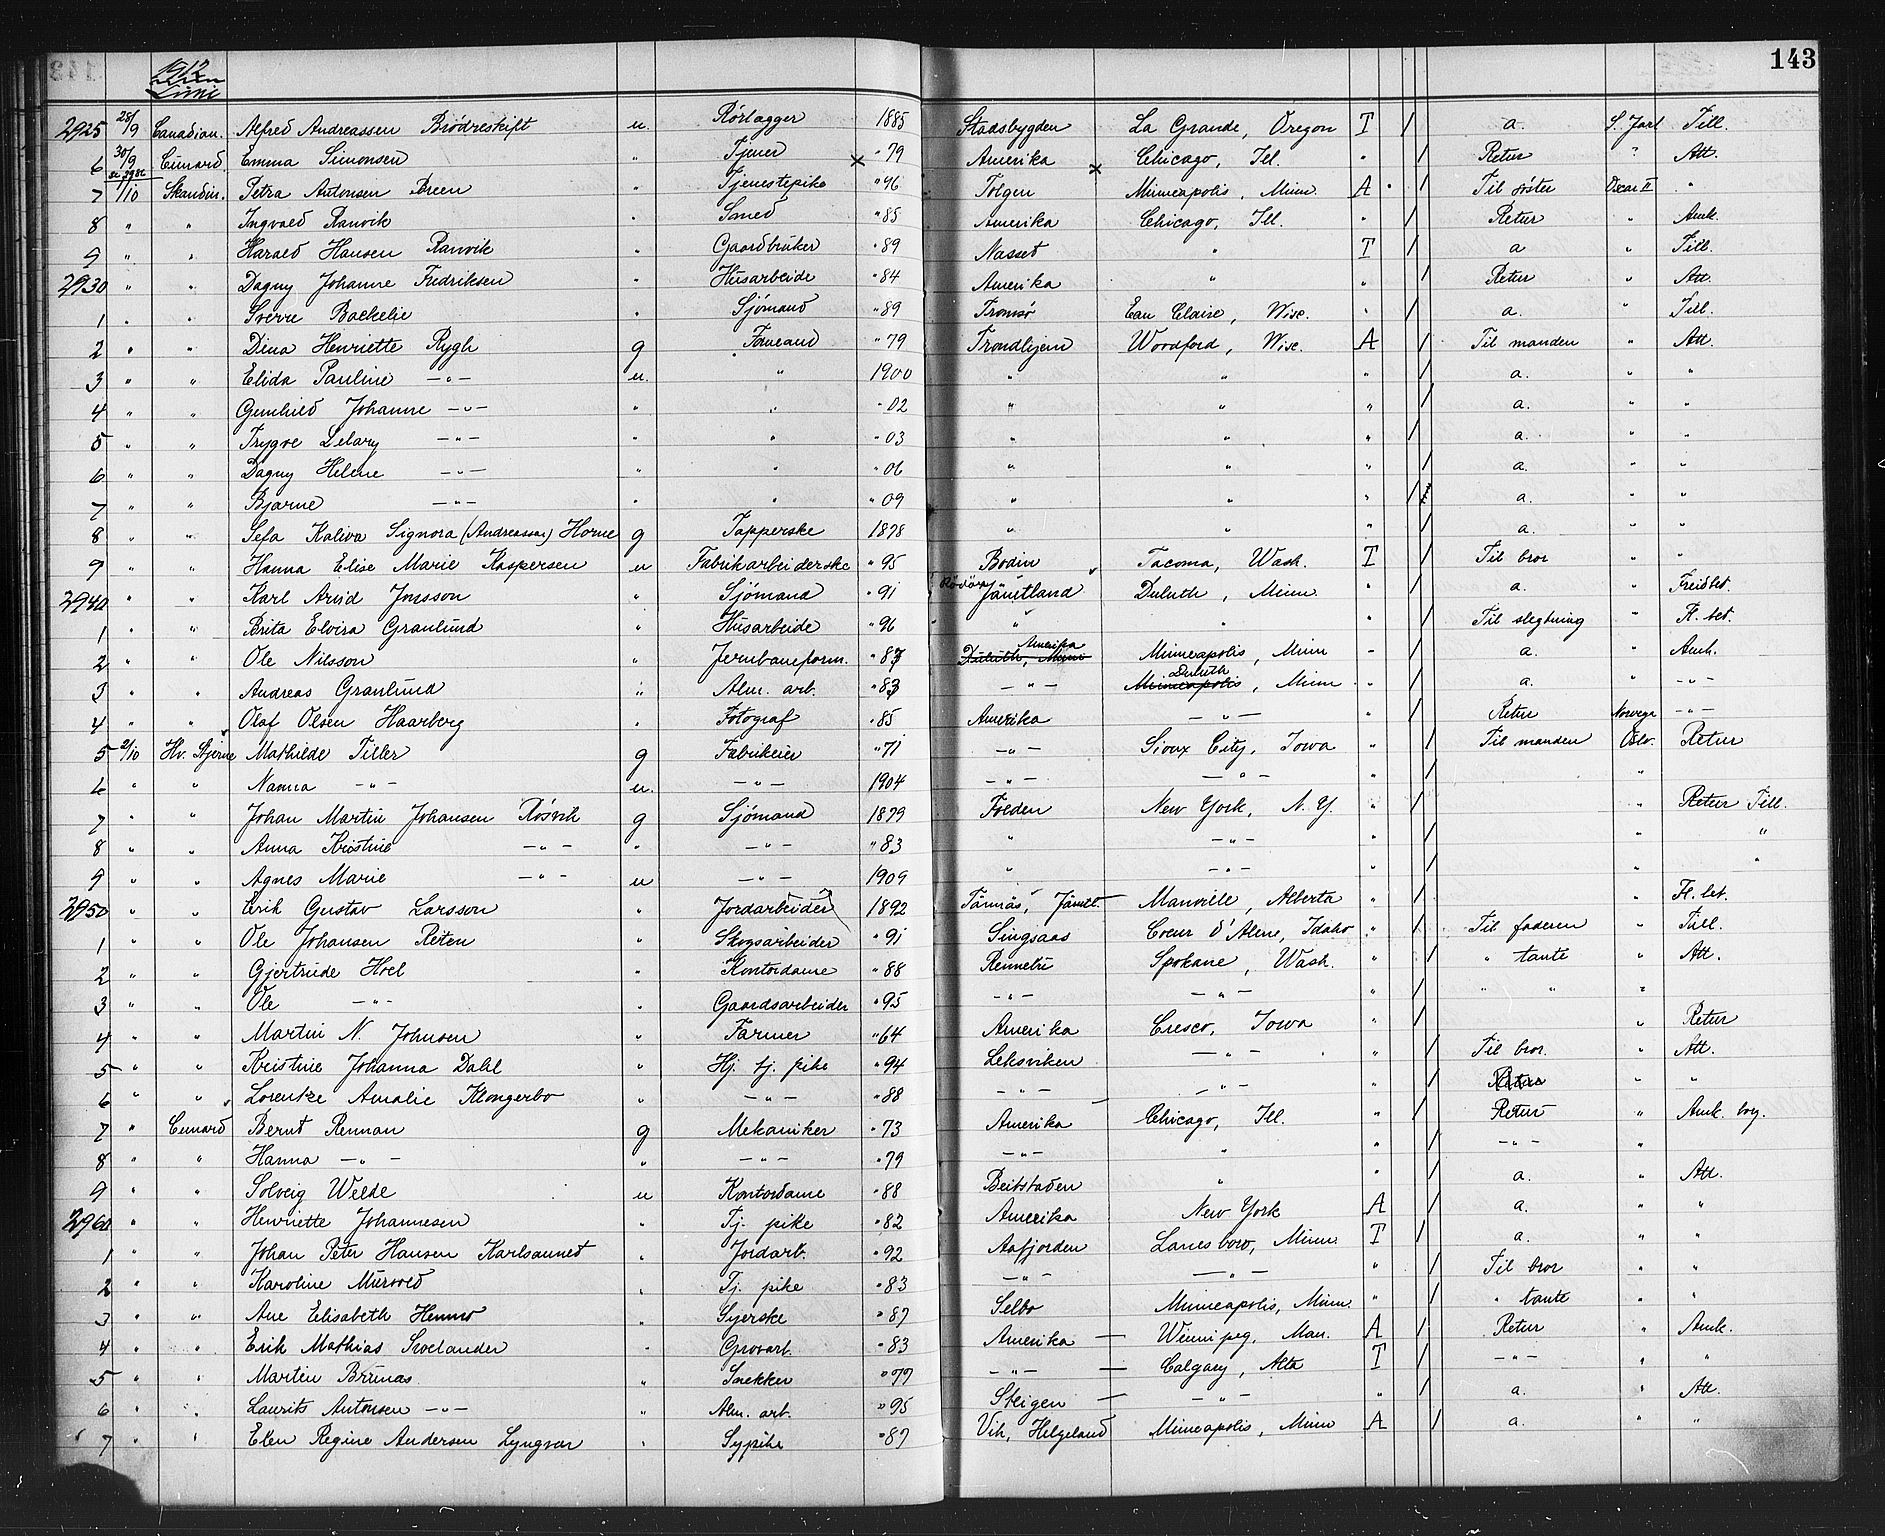 143
1912
Linie
2925 28/9 Canadian. Alfred Andreassen Brødreskift u. Rørlægger 1885 Stadsbygden La Grande, Oregon T / a. S. Jarl Till.
6 30/9 Cunard. Emma Simonsen " Tjener × " 79 Amerika × Chicago, Ill. " / Retur ? Att.
7 1/10 Skandin. Petra Antonsen Breen " Tjenestepike " 96 Tolgen Minneapolis, Minn. A / Til søster Oscar II "
8 " " Ingvald Ranvik " Smed " 85 Amerika Chicago, Ill. " / Retur " Amk.
9 " " Harald Hansen Ranvik " Gaardbruker " 89 Næsset " T / a " Till.
2930 " " Dagny Johanne Fredriksen " Husarbeide " 84 Amerika " " / Retur " Att.
1 " " Sverre Backelie " Sjømand " 89 Tromsø Eau Claire, Wisc. " / a. " Till.
2 " " Dina Henriette Rygh g " 79 Trondhjem Woodford, Wisc. A / Til manden " Att.
3 " " Elida Pauline — " — u. " 1900 " " " / a. " "
4 " " Gunhild Johanne — " — " " " 02 " " " / a. " "
5 " " Trygve — " — " " " 03 " " " / a. " "
6 " " Dagny Helene — " — " " " 06 " " " / a. " "
7 " " Bjarne — " — " " " 09 " " " / a. " "
8 " " Sefa Kaliva Signora (Andreassen) Horne g Tapperske 1878 " " " / a. " "
9 " " Hanna Elise Marie Kaspersen u Fabrikarbeiderske " 95 Bodin Tacoma, Wash. T / Til bror " "
2940 " " Karl Arvid Jonsson " Sjömand " 91 Rödön Jämtland Duluth, Minn. " / a. " Freidbet.
1 " " Brita Elvira Granlund " Husarbeide " 96 " " " / Til slegtning " Fl. bet.
2 " " Ole Nilsson " Jernbaneform. " 87 Duluth, Minn Amerika Minneapolis, Minn - / a. " Amk.
3 " " Andreas Granlund " Alm. arb. " 83 — " — Minneapolis Duluth, Minn " / a. " — " —
4 " " Olaf Olsen Haarberg " Fotograf " 85 Amerika — " — " / Retur Norwega — " —
5 2/10 Hv. Stjerne Mathilde Tiller g Fabrikeier " 71 — " — Sioux City, Iowa " / Til manden Oslv. Retur
6 " " Nanna — " — u. — " — 1904 — " — — " — " / "
7 " " Johan Martin Johansen Røsvik g Sjömand 1879 Folden New York, N. Y " / " Retur Till.
8 " " Anna Kristine — " — " — " — " 83 " — " — " / " "
9 " " Agnes Marie — " — u — " — 1909 " — " — " / " "
2950 " " Erik Gustav Larsson " Jordarbeider 1892 Tännäs, Jämtl. Manville, Alberta " / " Fl. bet.
1 " " Ole Johansen Reten " Skogsarbeider " 91 Singsaas Coeur d'Alene, Idaho " / Til faderen " Till.
2 " " Gjertrude Hoel " Kontordame " 88 Rennebu Spokane, Wash. " / " tante " Att.
3 " " Ole — " — " Gaardsarbeider " 95 — " — — " — " / " " "
4 " " Martin N. Johnsen " Farmer " 64 Amerika Cresco, Iowa " / " Retur
5 " " Kristine Johanna Dahl " Hj. tj. pike " 94 Leksviken — " — " / Til bror. " Att.
6 " " Lorentze Amalie Klongerbo " — " — " 88 — " — — " — " / Retur " "
7 " Cunard Bernt Rennan g Mekaniker " 73 Amerika Chicago, Ill. " / Retur " Amk. bvg.
8 " " Hanna — " — " — " — " 79 — " — " " / — " — "
9 " " Solveig Welde u Kontordame " 88 Beitstaden " " / a. " Att.
2960 " " Henriette Johannesen " Tj. pike " 82 Amerika New York A / a. " "
1 " " Johan Peter Hansen Karlsaunet " Jordarb. " 92 Aafjorden Lanesboro, Minn. T / a. " "
2 " " Karoline Murvold " Tj. pike " 83 — " — — " — " / Til bror " "
3 " " Ane Elisabeth Hemmo " Syerske " 87 Selbo Minneapolis, Minn. " / " tante " "
4 " " Erik Mathias Svelander " Grovarb. " 83 Amerika — Winnipeg, Man. A / Retur " Amk.
5 " " Martin Brunas " Snekker " 77 — " — — Calgary, Alta T / — " — " "
6 " " Laurits Antonsen — " — " Alm. arb. " 95 Steigen — — " — " / a. " Att.
7 " " Elen Regine Andersen Lyngvær " Sypike " 87 Vik, Helgeland Minneapolis, Minn A / a. " "